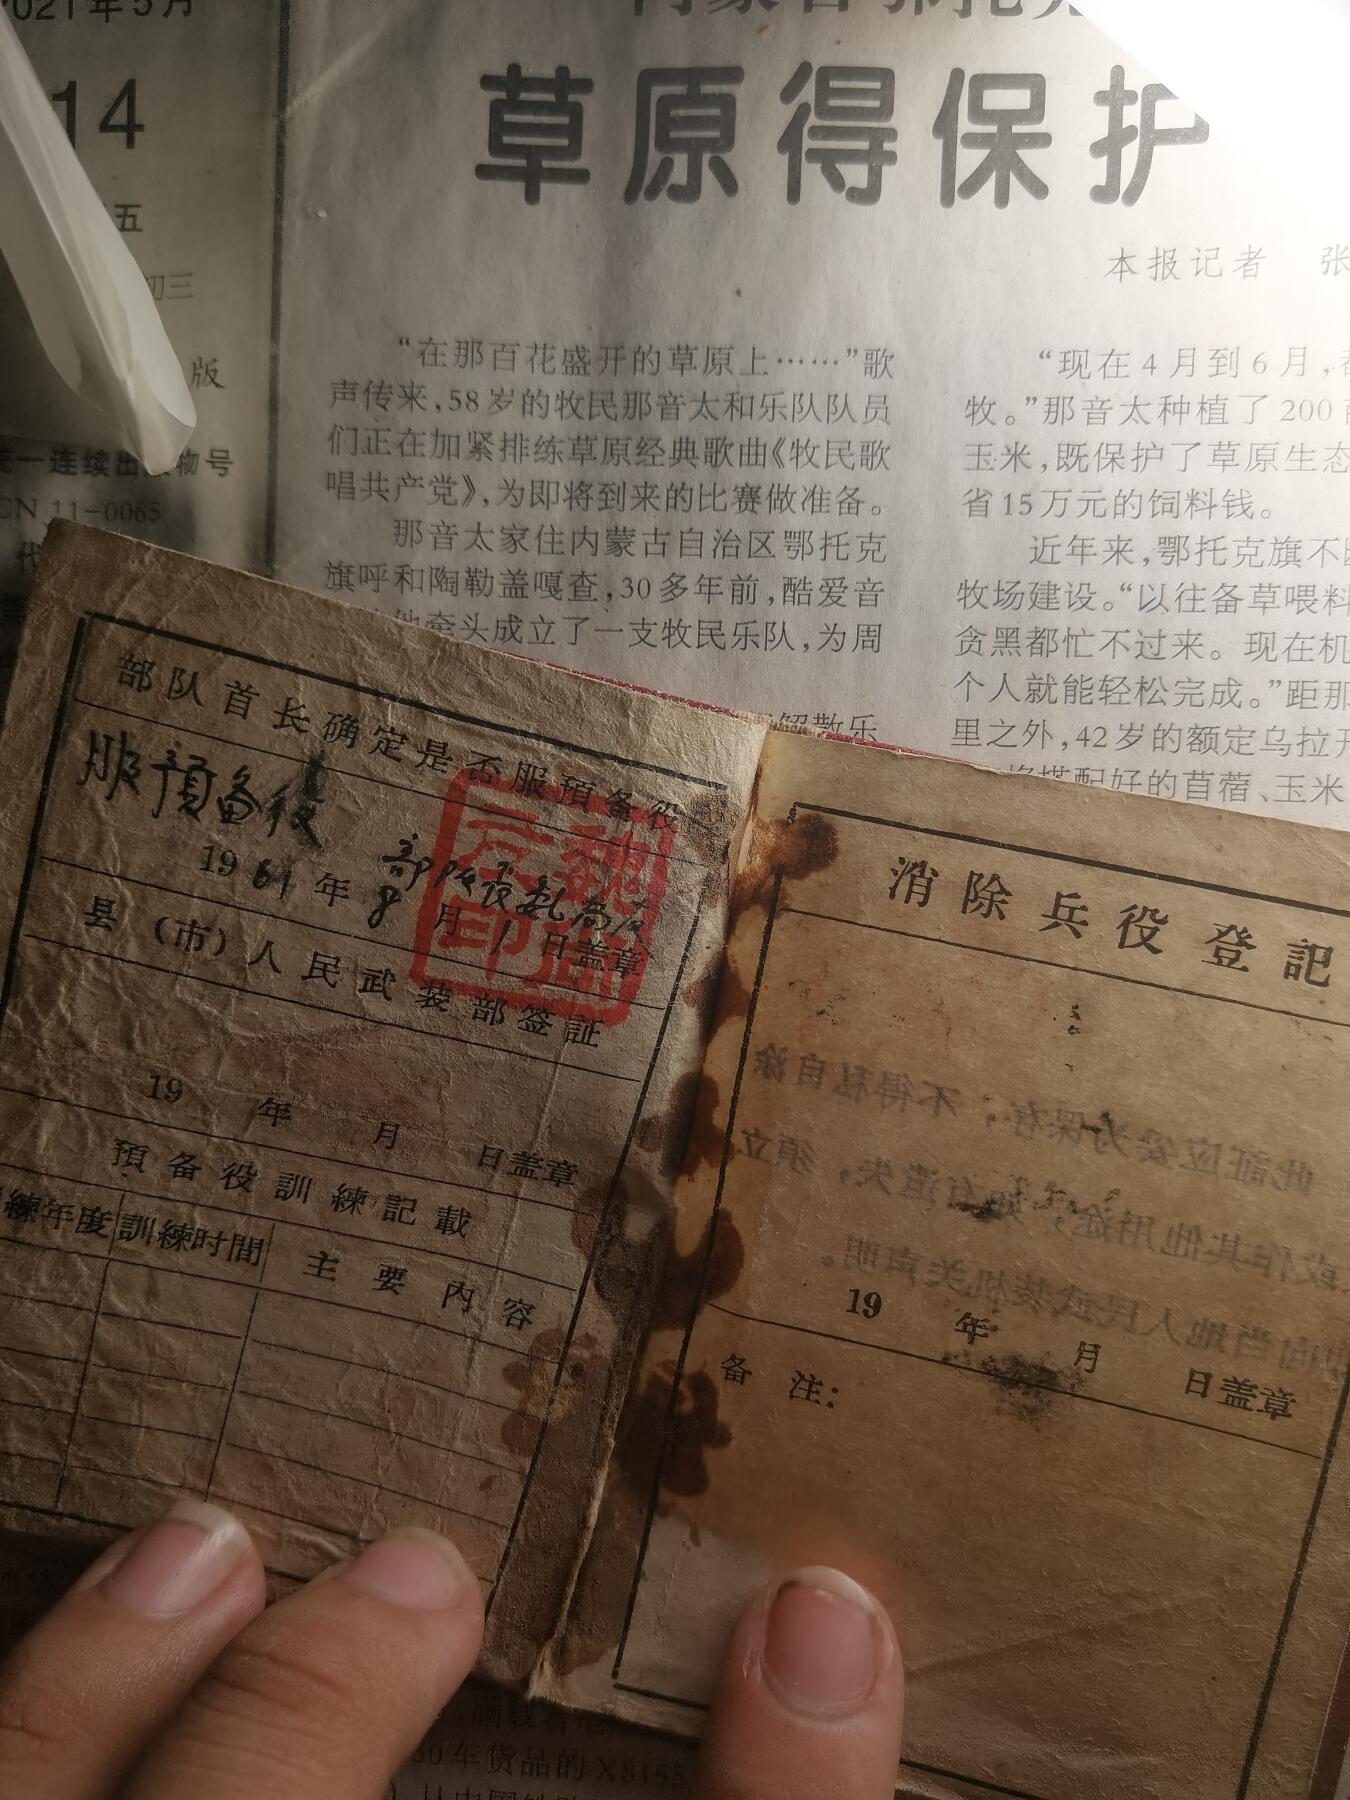 2021年5月
14
五
初三
版
统一连续出版物号
CN 11-0065
代
草原得保护
本报记者 张
“在那百花盛开的草原上……”歌
声传来，58岁的牧民那音太和乐队队员
们正在加紧排练草原经典歌曲《牧民歌
唱共产党》，为即将到来的比赛做准备。
那音太家住内蒙古自治区鄂托克
旗呼和陶勒盖嘎查，30多年前，酷爱音
他牵头成立了一支牧民乐队，为周
解散乐
“现在4月到6月，
牧。”那音太种植了200
玉米，既保护了草原生态
省15万元的饲料钱。
近年来，鄂托克旗不断
牧场建设。“以往备草喂料
贪黑都忙不过来。现在机
个人就能轻松完成。”距那
里之外，42岁的额定乌拉开
将搭配好的苜蓿、玉米
部队首长确定是否服預备役
服預备役
1961年8月1日盖章
县（市）人民武装部签証
19 年 月 日盖章
預备役訓練記載
練年度 訓練时間 主要內容
消除兵役登記
19 年 月 日盖章
备注：
此証应妥为保存；不得私自涂
或作其他用途，如有遗失，須立
即向当地人民武装机关声明。
50车货品的X8155